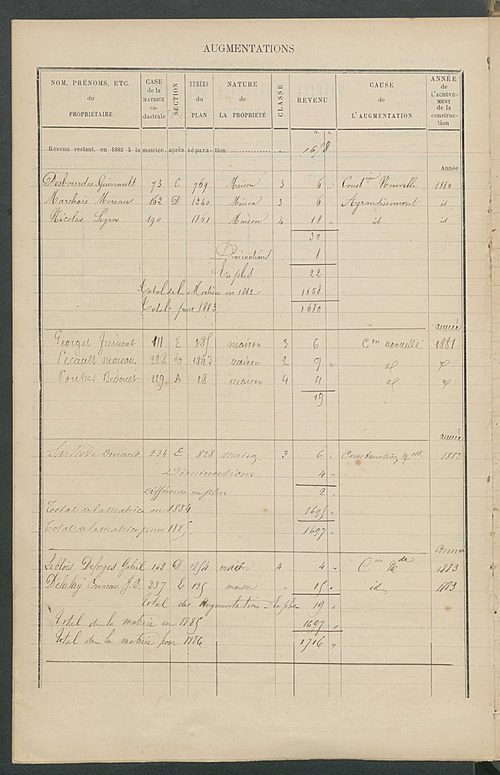 AUGMENTATIONS
NOM, PRÉNOMS, ETC. du PROPRIÉTAIRE
CASE de la MATRICE ca- dastrale
SECTION
NUMÉRO du PLAN
NATURE de LA PROPRIÉTÉ
CLASSE
REVENU
CAUSE de L'AUGMENTATION
ANNÉE de L'ACHÈVE- MENT de la construc- tion
Revenu restant, en 1881 à la matrice, après séparation 1658
Année
Desbourdes Guinault 73 C 769 Maison 3 6 Const ion Nouvelle 1880
Marchais Moreau 162 D 1240 Maison 3 6 Agrandissement id
Nicolas 190 1861 Maison 4 18 id id
30
Diminutions 8
En plus 22
Total de la Matrice en 1882 1658
Total pour 1883 1680
année
Georget 111 E 185 maison 3 6 C on nouvelle 1881
Perault moreau maison 2 9 "
Porcher 119 A 18 maison 4 4
19
année
Durand 234 E 828 maison 3 6 Construction 1882
Diminutions 4
Différence en plus 2
Total de la matrice en 1884 1695
Total de la matrice pour 1885 1697
Leblois Desforges 142 D maison 4 4 C on 1883
237 E 135 maison 15 id 1883
Total des Augmentations En plus 19
Total de la matrice en 1885 1697
Total de la matrice pour 1886 1716